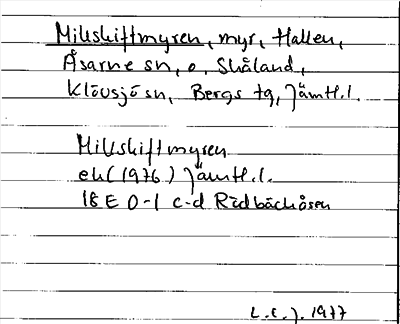 Millskiftmyren, myr, Hallen,
Åsarne sn, o. Skåland,
Klövsjö sn, Bergs tg, Jämtl.l.
Millskiftmyren
ek (1976) Jämtl.l.
18E 0-1 c-d Rödbäckåsen
L.E.J. 1977